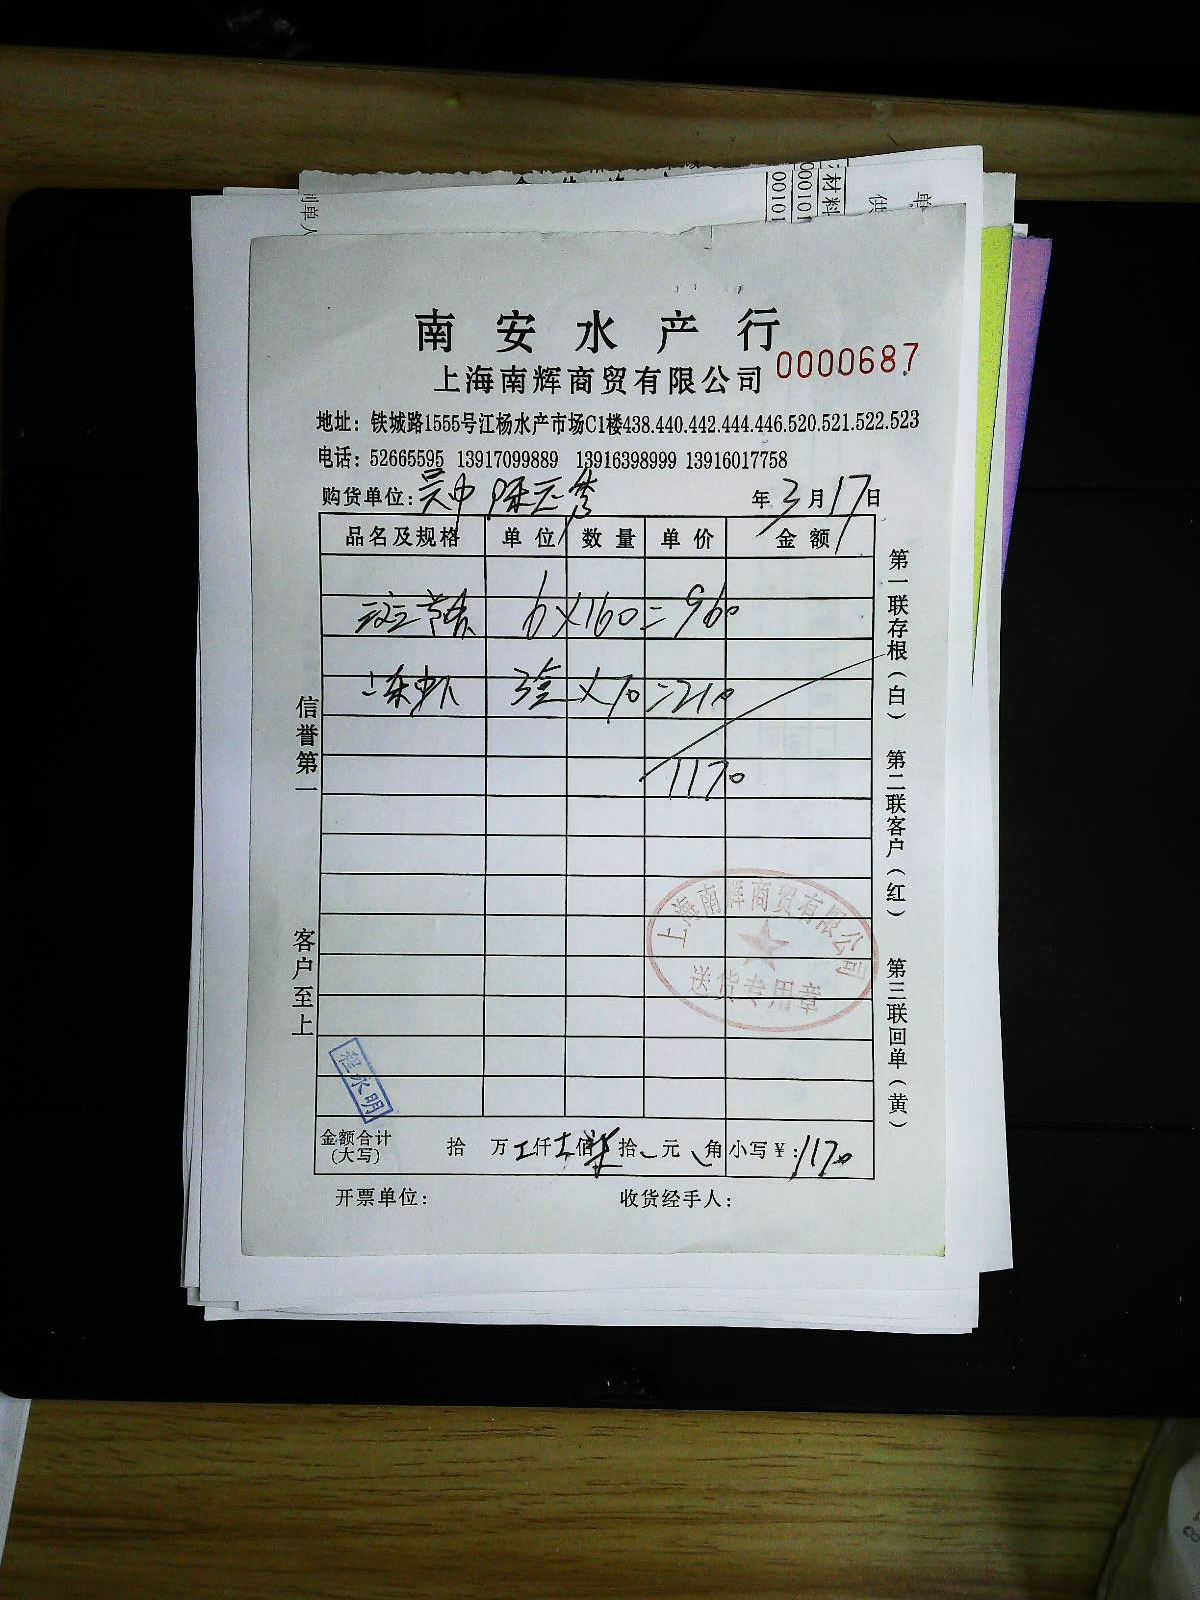 南安水产行
上海南辉商贸有限公司 0000687
地址：铁城路1555号江杨水产市场C1楼438.440.442.444.446.520.521.522.523
电话：52665595 13917099889 13916398999 13916017758
购货单位：吴中 年3月17日
品名及规格 单位 数量 单价 金额
6×160=960
3盒×70=210
1170
金额合计(大写) 拾 万 仟 佰柒拾 元 角 小写￥：1170
开票单位： 收货经手人：
信誉第一 客户至上
第一联存根（白） 第二联客户（红） 第三联回单（黄）
上海南辉商贸有限公司
送货专用章
程永明
材料